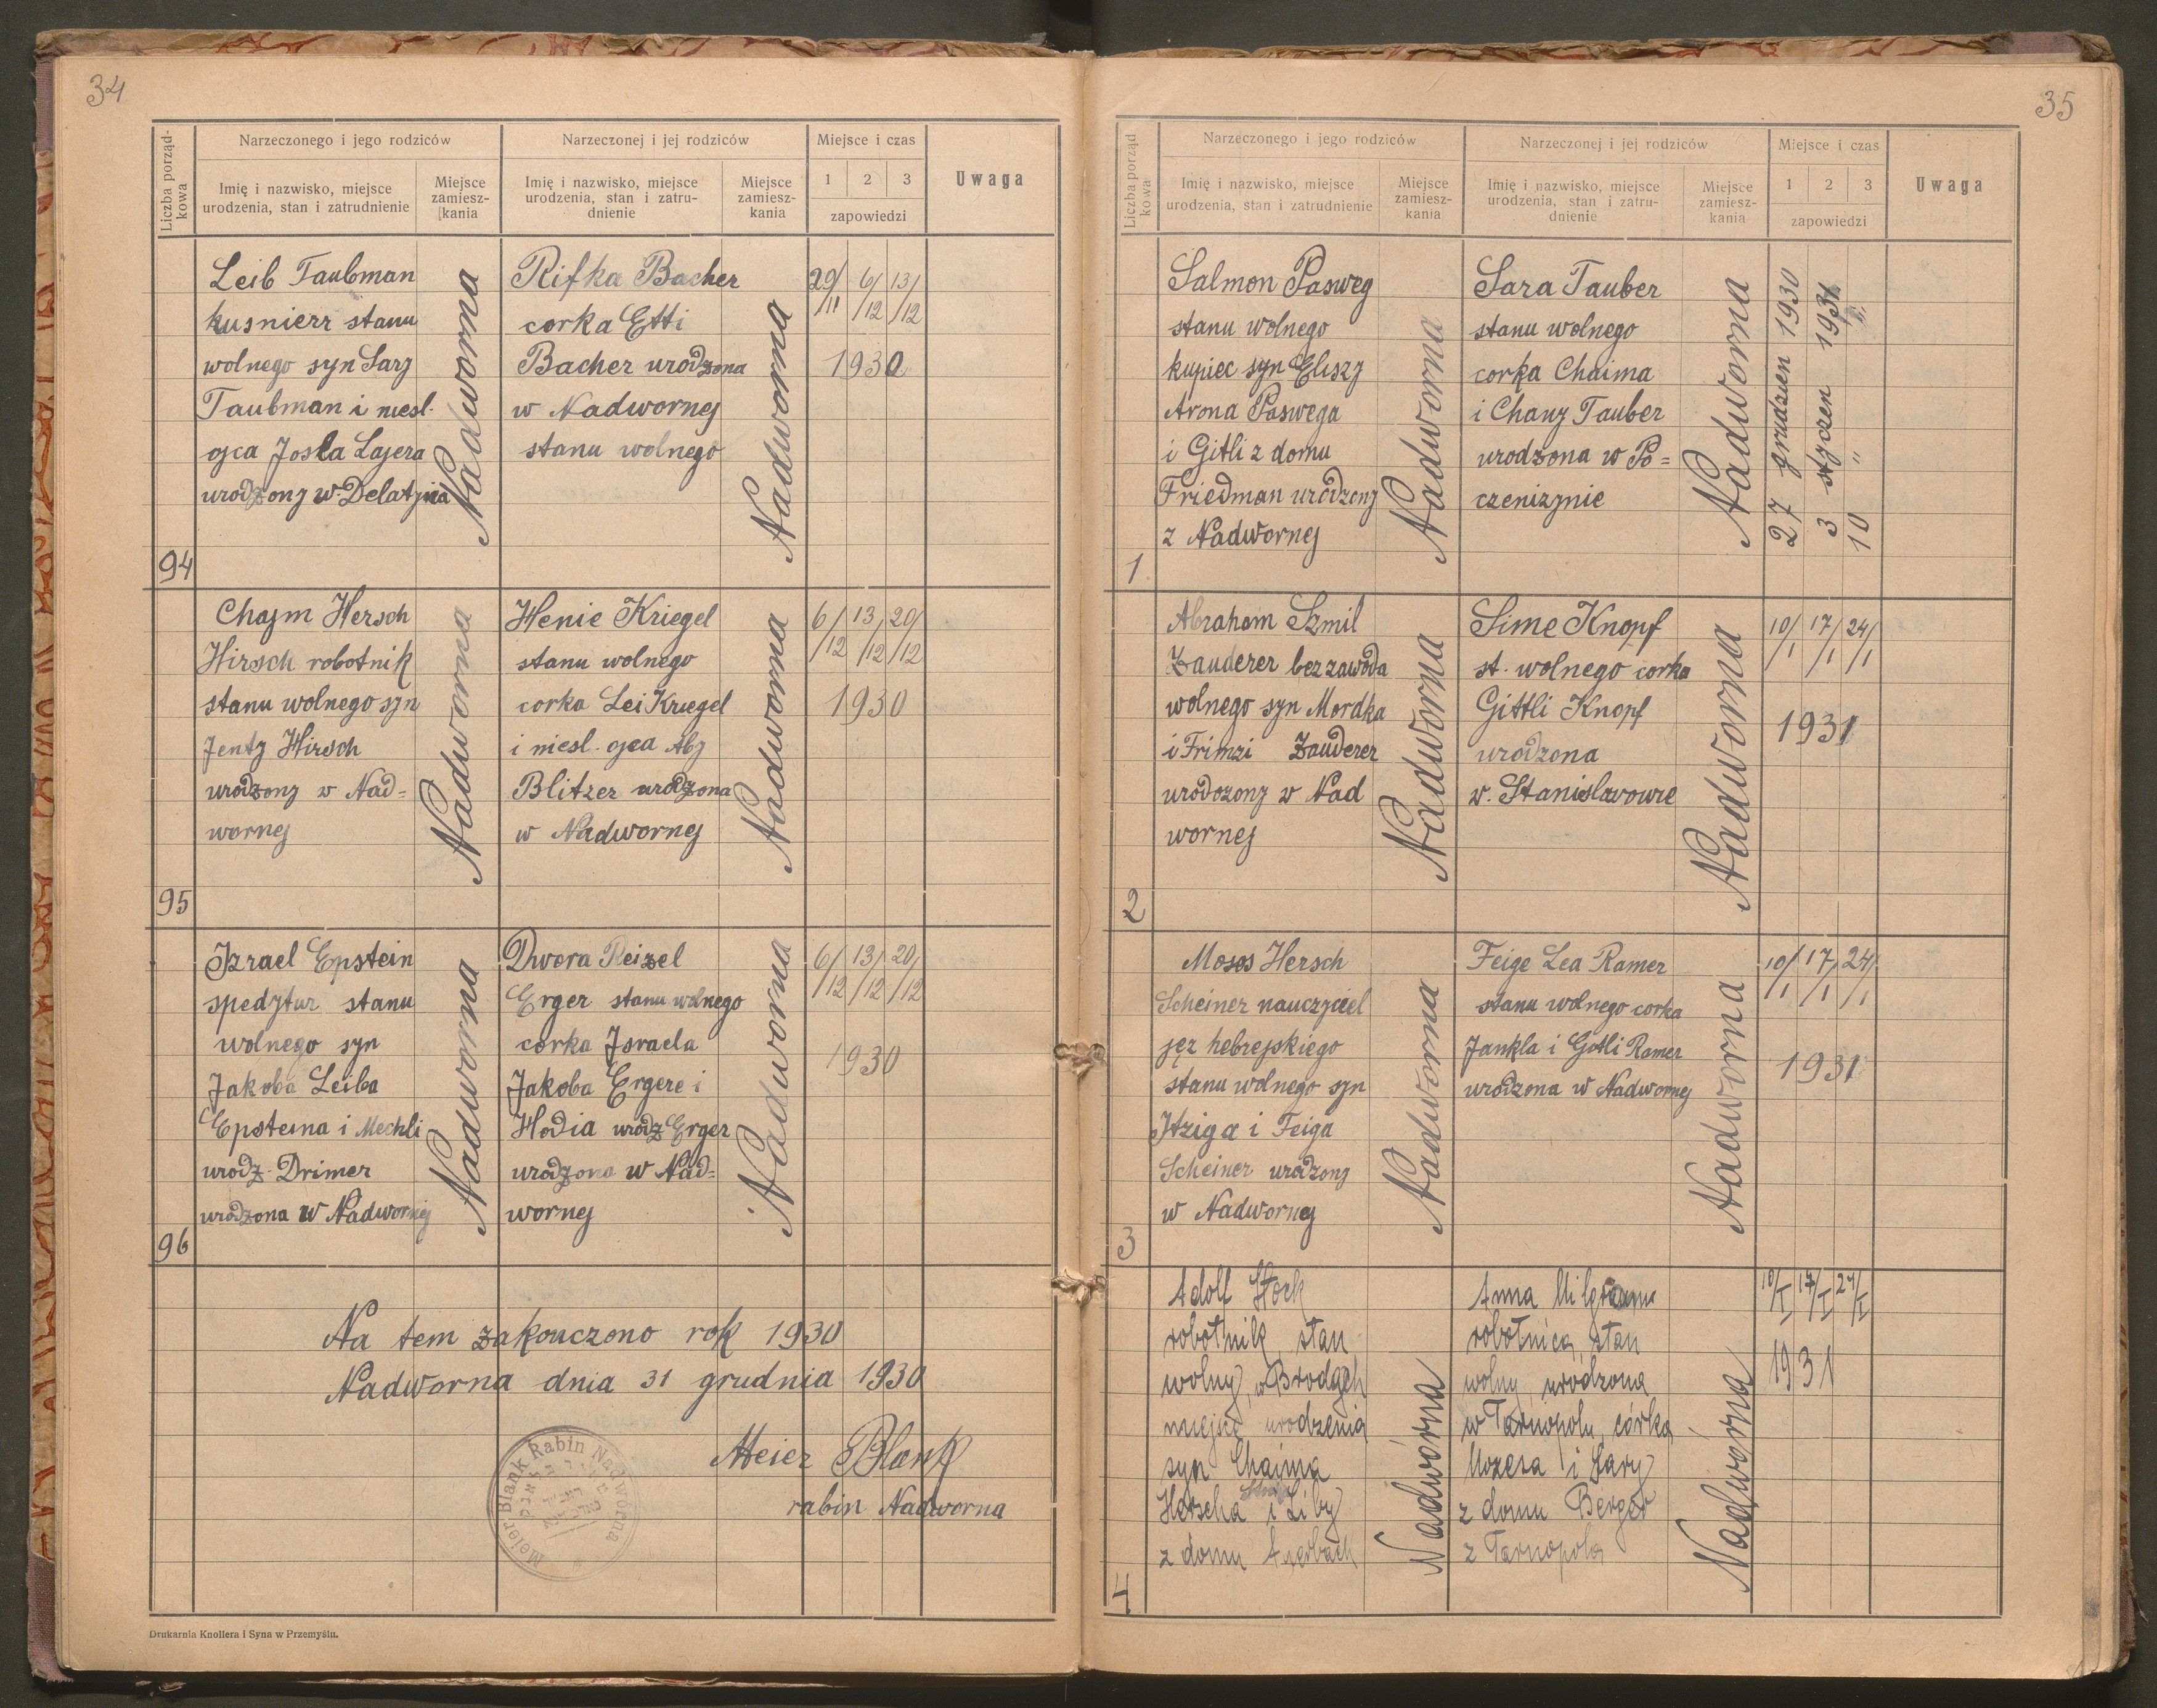 34
Liczba porząd-
kowa
Narzeczonego i jego rodziców
Imię i nazwisko, miejsce
urodzenia, stan i zatrudnienie
Miejsce
zamiesz-
kania
Narzeczonej i jej rodziców
Imię i nazwisko, miejsce
urodzenia, stan i zatru-
dnienie
Miejsce
zamiesz-
kania
Miejsce i czas
1 2 3
zapowiedzi
Uwaga
94
Leib Taubman
kusnierz stanu
wolnego syn Sary
Taubman i niesl.
ojca Josla Lajera
urodzony w Delatynia
Nadworna
Rifka Bacher
corka Etti
Bacher urodzona
w Nadwornej
stanu wolnego
Nadworna
29/11 6/12 13/12
1930
95
Chajm Hersch
Hirsch robotnik
stanu wolnego syn
Jenty Hirsch
urodzony w Nad=
wornej
Nadworna
Henie Kriegel
stanu wolnego
corka Lei Kriegel
i niesl. ojca Aby
Blitzer urodzona
w Nadwornej
Nadworna
6/12 13/12 20/12
1930
96
Izrael Epstein
spedytur stanu
wolnego syn
Jakoba Leiba
Epsteina i Mechli
urodz. Drimer
urodzona w Nadwornej
Nadworna
Dwora Reizel
Erger stanu wolnego
corka Israela
Jakoba Ergere i
Hodia urodz Erger
urodzona w Nad=
wornej
Nadworna
6/12 13/12 20/12
1930
Na tem zakonczono rok 1930
Nadworna dnia 31 grudnia 1930
Meier Blank
rabin Nadworna
Meier Blank Rabin Nadworna
Drukarnia Knollera i Syna w Przemyślu.
35
Liczba porząd
kowa
Narzeczonego i jego rodziców
Imię i nazwisko, miejsce
urodzenia, stan i zatrudnienie
Miejsce
zamiesz-
kania
Narzeczonej i jej rodziców
Imię i nazwisko, miejsce
urodzenia, stan i zatru-
dnienie
Miejsce
zamiesz-
kania
Miejsce i czas
1 2 3
zapowiedzi
Uwaga
1
Salmon Pasweg
stanu wolnego
kupiec syn Eliszy
Arona Paswega
i Gitli z domu
Friedman urodzony
z Nadwornej
Nadworna
Sara Tauber
stanu wolnego
corka Chaima
i Chany Tauber
urodzona w Po=
czenizynie
Nadworna
27 grudzien 1930
3 styczen 1931
10 " "
2
Abraham Szmil
Zauderer bez zawoda
wolnego syn Mordka
i Frimzi Zauderer
urodozony w Nad
wornej
Nadworna
Sime Knopf
st. wolnego corka
Gittli Knopf
urodzona
w. Stanislawowie
Nadworna
10/1 17/1 24/1
1931
3
Moses Hersch
Scheiner nauczyciel
jęz hebrejskiego
stanu wolnego syn
Itziga i Feiga
Scheiner urodzony
w Nadwornej
Nadworna
Feige Lea Ramer
stanu wolnego corka
Jankla i Gitli Ramer
urodzona w Nadwornej
Nadworna
10/1 17/1 24/1
1931
4
Adolf Hock
robotnik, stan
wolny, w Brodach
miejsce urodzenia
syn Chaima
Herscha i Liby
z domu Auerbach
Nadwórna
Anna Milgraum
robotnica, stan
wolny, urodzona
w Tarnopolu, córka
Mozesa i Sary
z domu Berger
z Tarnopola
Nadwórna
10/I 17/I 24/I
1931